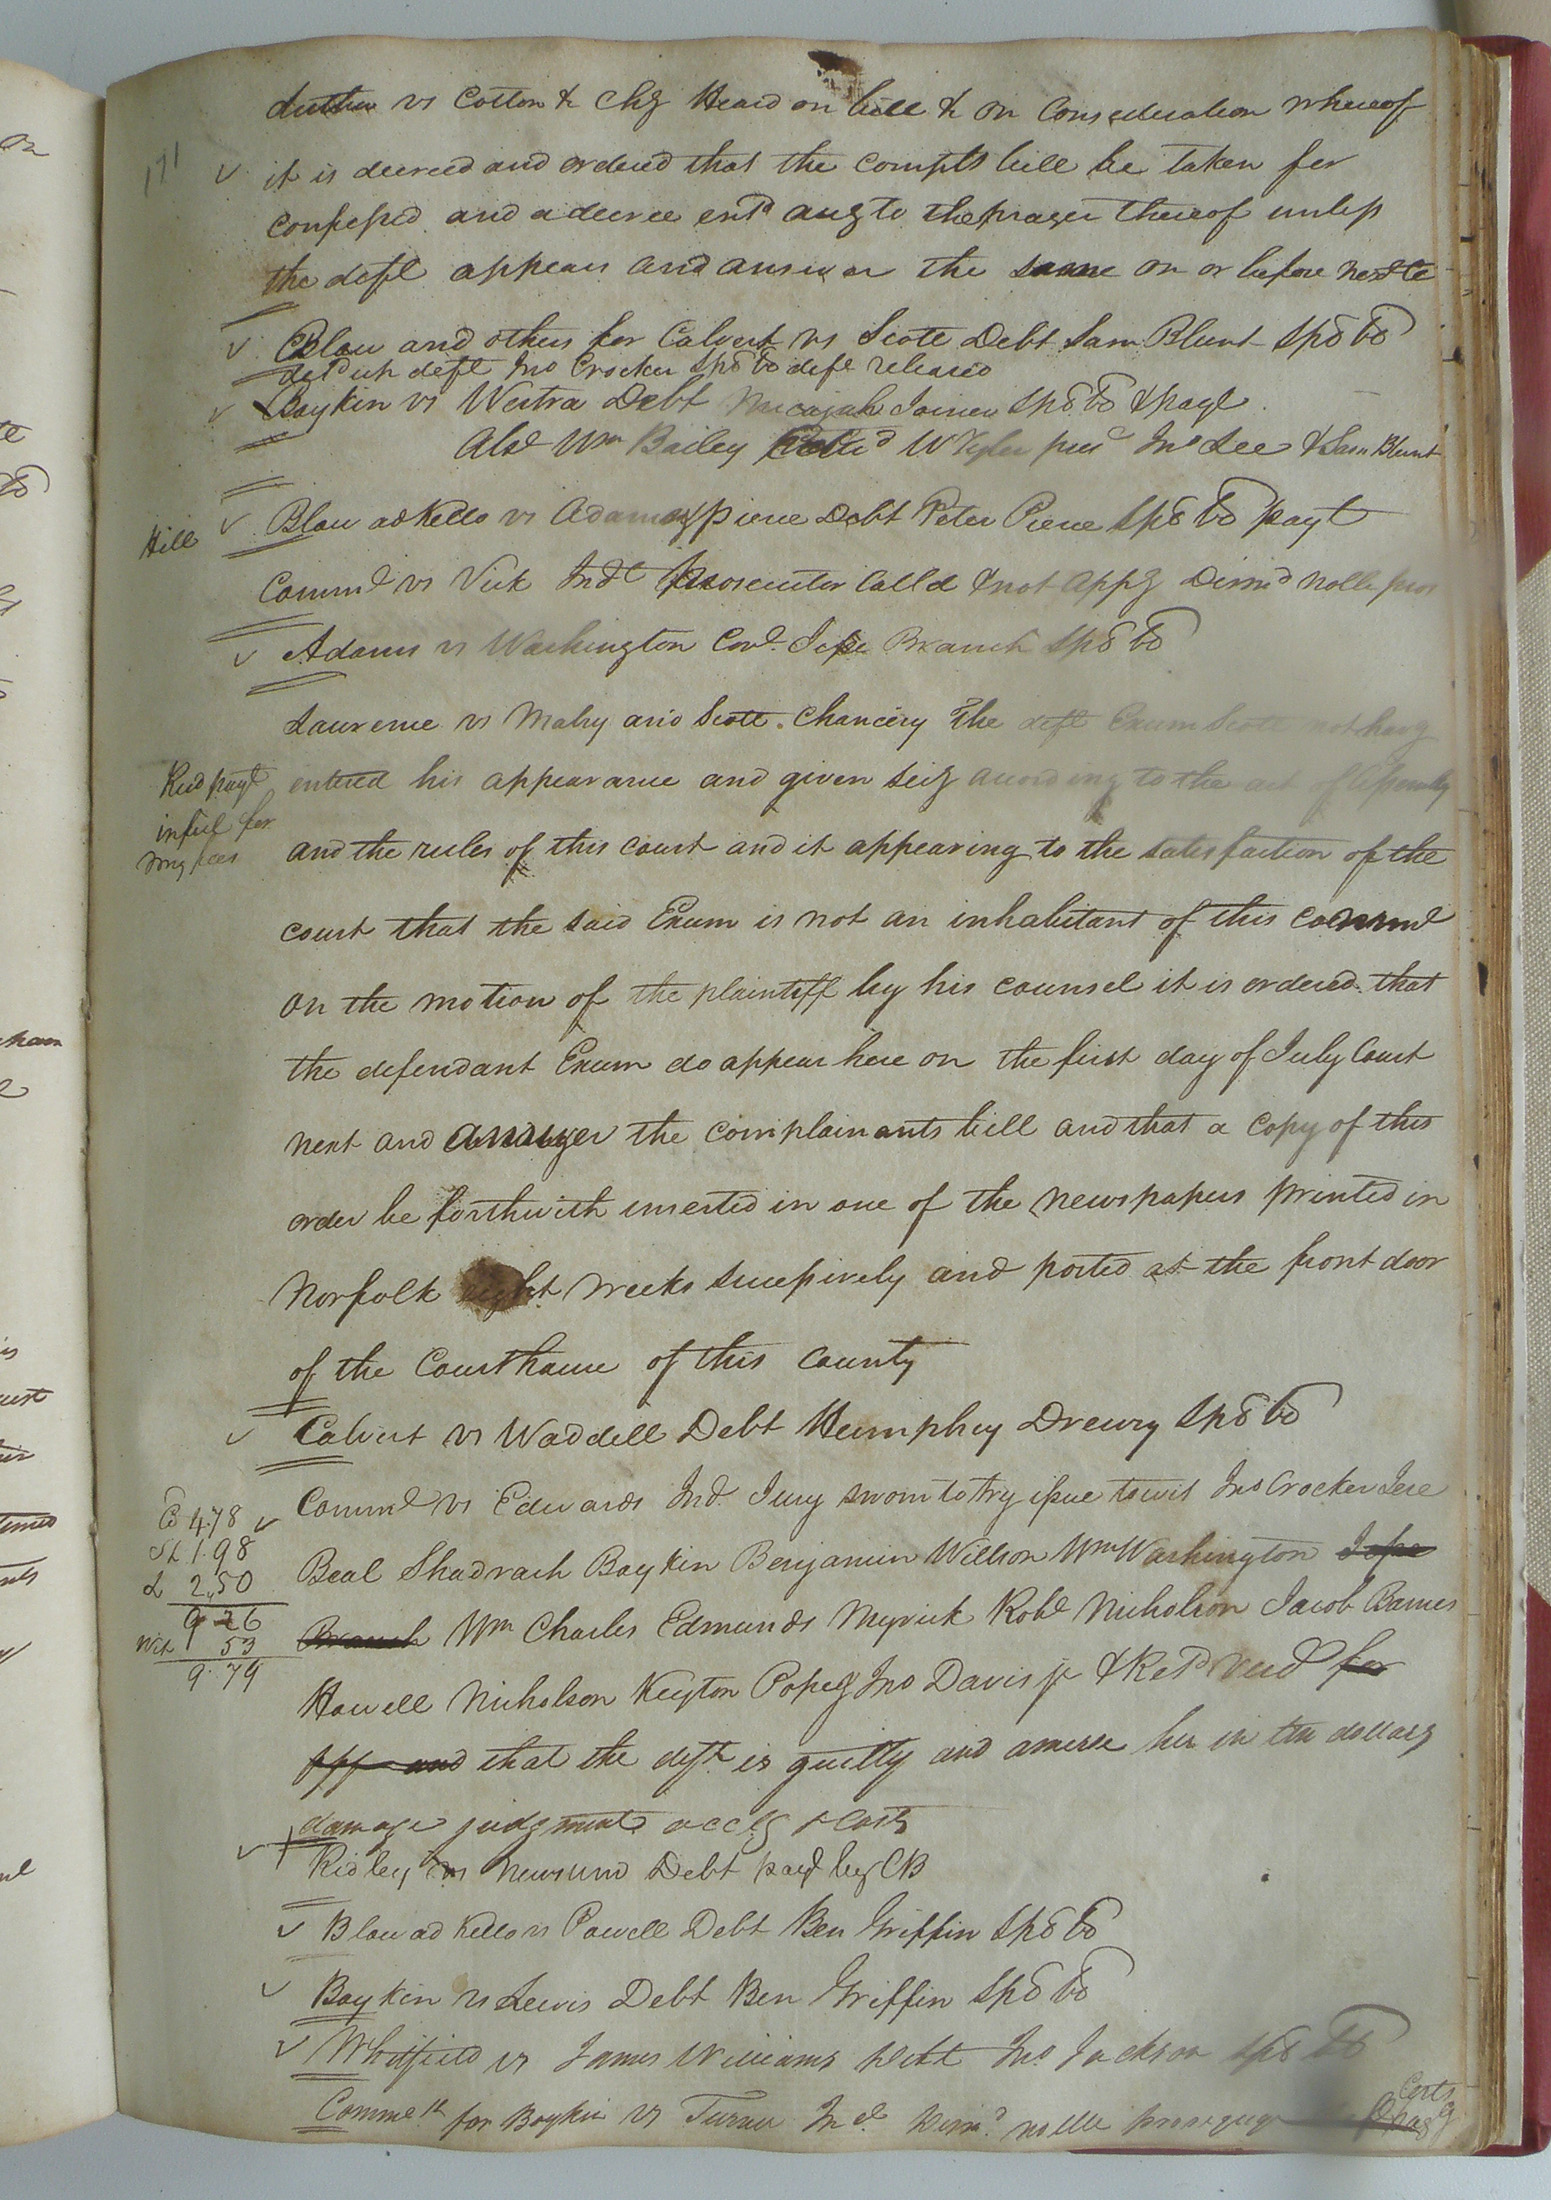 vs Cotton & Chy Heard on bill & on Consideration whereof
171 it is decreed and ordered that the Complts bill be taken for
Confessed and a decree entd accg to the prayer thereof unless
the deft appears and answer the same on or before next te
Blow and others for Calvert vs Scott Debt Sam Blunt spb bd
deld up deft Jno Crocker spb bd deft released
Boykin vs Westra Debt Micajah Joiner spb bd & payt
Also Wm Bailey W Tyler Jno Lee & Sam Blunt
Hill
Blow ad Kello vs Adams & Pierce Debt Peter Pierce spb bd payt
Commd vs Vick Indt Prosecutor Calld & not appg Dismd nolle pros
Adams vs Washington Covt Jesse Branch spb bd
Laurence vs Mabry and Scott Chancery The deft Exum Scott not havg
Recd payt
in full for
my fees
entered his appearance and given secy according to the act of Assembly
and the rules of this court and it appearing to the satisfaction of the
court that the said Exum is not an inhabitant of this Commd
on the motion of the plaintiff by his counsel it is ordered that
the defendant Exum do appear here on the first day of July Court
next and answer the complainants bill and that a copy of this
order be forthwith inserted in one of the newspapers printed in
Norfolk eight weeks successively and posted at the front door
of the Courthouse of this county
Calvert vs Waddell Debt Humphrey Drewry spb bd
C 4.78
Sh 1.98
L 2.50
9.26
Wit 53
9.79
Commd vs Edwards Ind. Jury sworn to try issue towit Jno Crocker Jere
Beal Shadrach Boykin Benjamin Willson Wm Washington Jesse
Branch Wm Charles Edmunds Myrick Robt Nicholson Jacob Barnes
Howell Nicholson Keyton Pope Jno Davis jr & Retd Verd for
plf and that the deft is guilty and amerse her in ten dollars
damage judgment accg & Costs
Ridley vs Newsum Debt payt by CB
Blow ad Kello vs Powell Debt Ben Griffin spb bd
Boykin vs Lewis Debt Ben Griffin spb bd
Whitfield vs James Williams Debt Jno Jackson spb bd
Commelth for Boykin vs Turner Ind. Dismd. nolle prosequi Costs